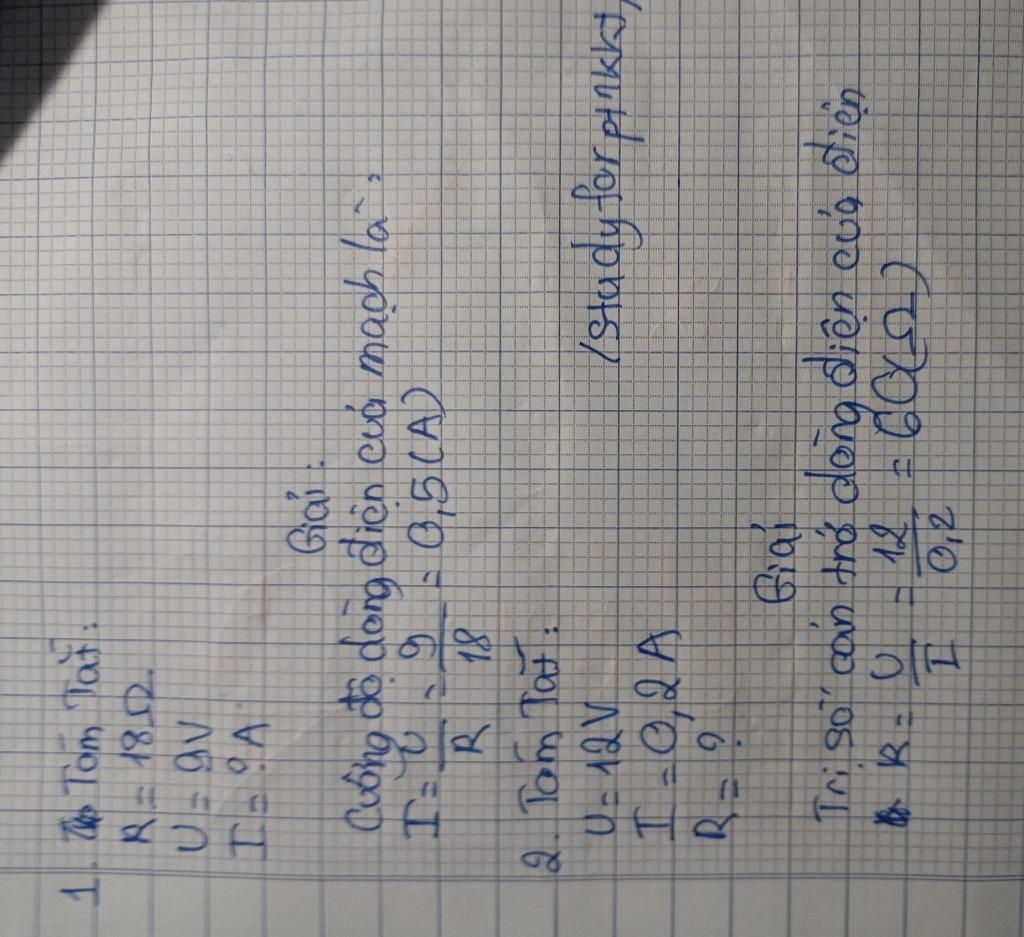 1. Tóm Tắt:
R = 18Ω
U = 9V
I = ? A
Giải:
Cường độ dòng điện của mạch là:
I = U/R = 9/18 = 0,5 (A)
2. Tóm Tắt:
U = 12V
(studyforpjnkkj)
I = 0,2 A
R = ?
Giải
Trị số cản trở dòng điện của điện
R = U/I = 12/0,2 = 60(Ω)